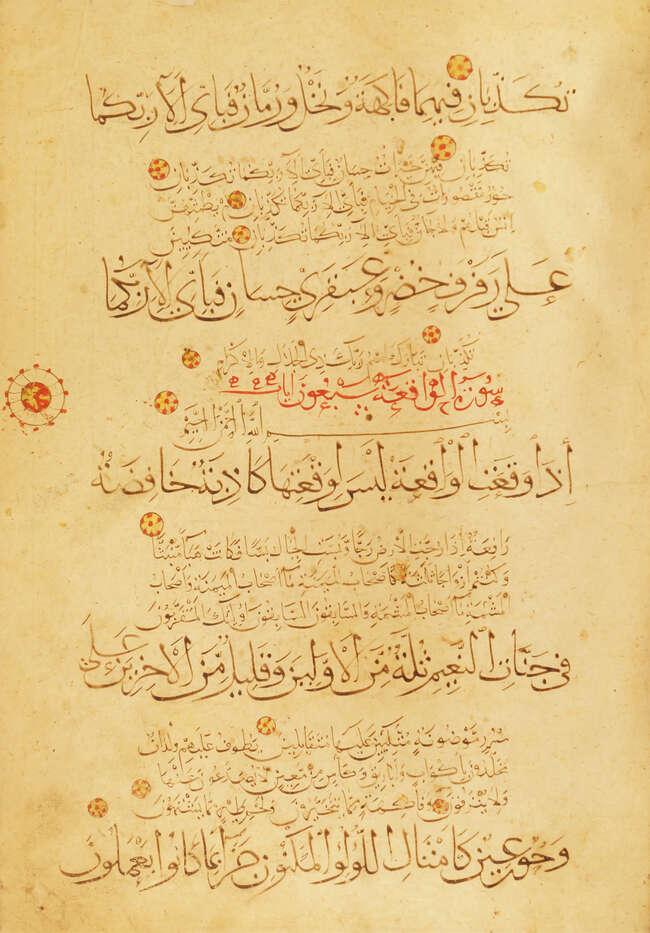 تكذبان فيهما فاكهة ونخل ورمان فباي الآء ربكما
تكذبان فيهن خيرات حسان فبأي الآء ربكما تكذبان
حور مقصورات في الخيام فبأي الآء ربكما تكذبان لم يطمثهن
انس قبلهم ولا جان فبأي الآء ربكما تكذبان متكئين
على رفرف خضر وعبقري حسان فبأي الآء ربكما
تكذبان تبارك اسم ربك ذي الجلال والاكرام
سورة الواقعة سبعون ايات
بسم الله الرحمن الرحيم
إذا وقعت الواقعة ليس لوقعتها كاذبة خافضة
رافعة إذا رجت الارض رجا وبست الجبال بسا فكانت هباء منبثا
وكنتم أزواجا ثلثة فاصحاب الميمنة ما أصحاب الميمنة واصحاب
المشئمة ما أصحاب المشئمة والسابقون السابقون اولئك المقربون
في جنات النعيم ثلة من الاولين وقليل من الاخرين على
سرر موضونة متكئين عليها متقابلين يطوف عليهم ولدان
مخلدون باكواب واباريق وكاس من معين لا يصدعون عنها
ولا ينزفون وفاكهة مما يتخيرون ولحم طير مما يشتهون
وحور عين كامثال اللؤلؤ المكنون جزاء بما كانوا يعملون